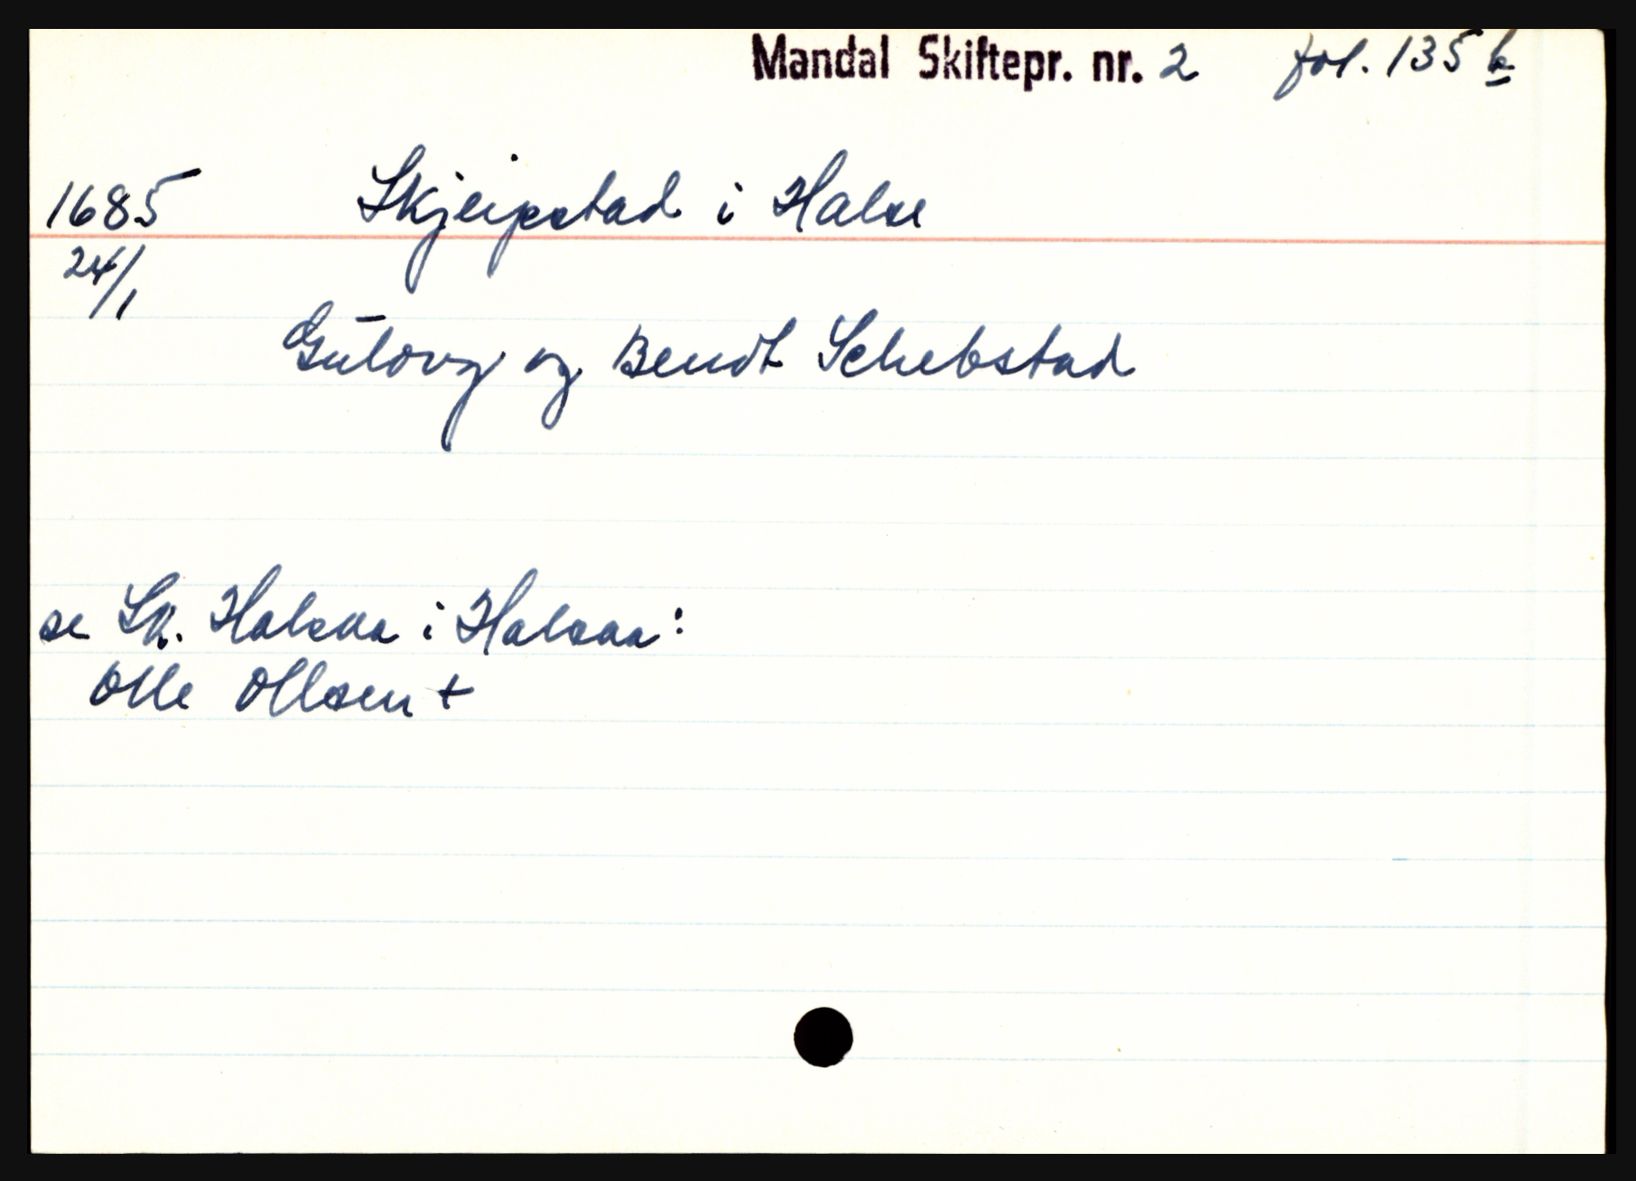 Mandal Skiftepr. nr. 2 fol. 135 b
1685 Skjeipstad i Halse
24/1
Gúlovg og Bendt Schebstad
se Sk. Halsaa i Halsaa:
Olle Ollsen +